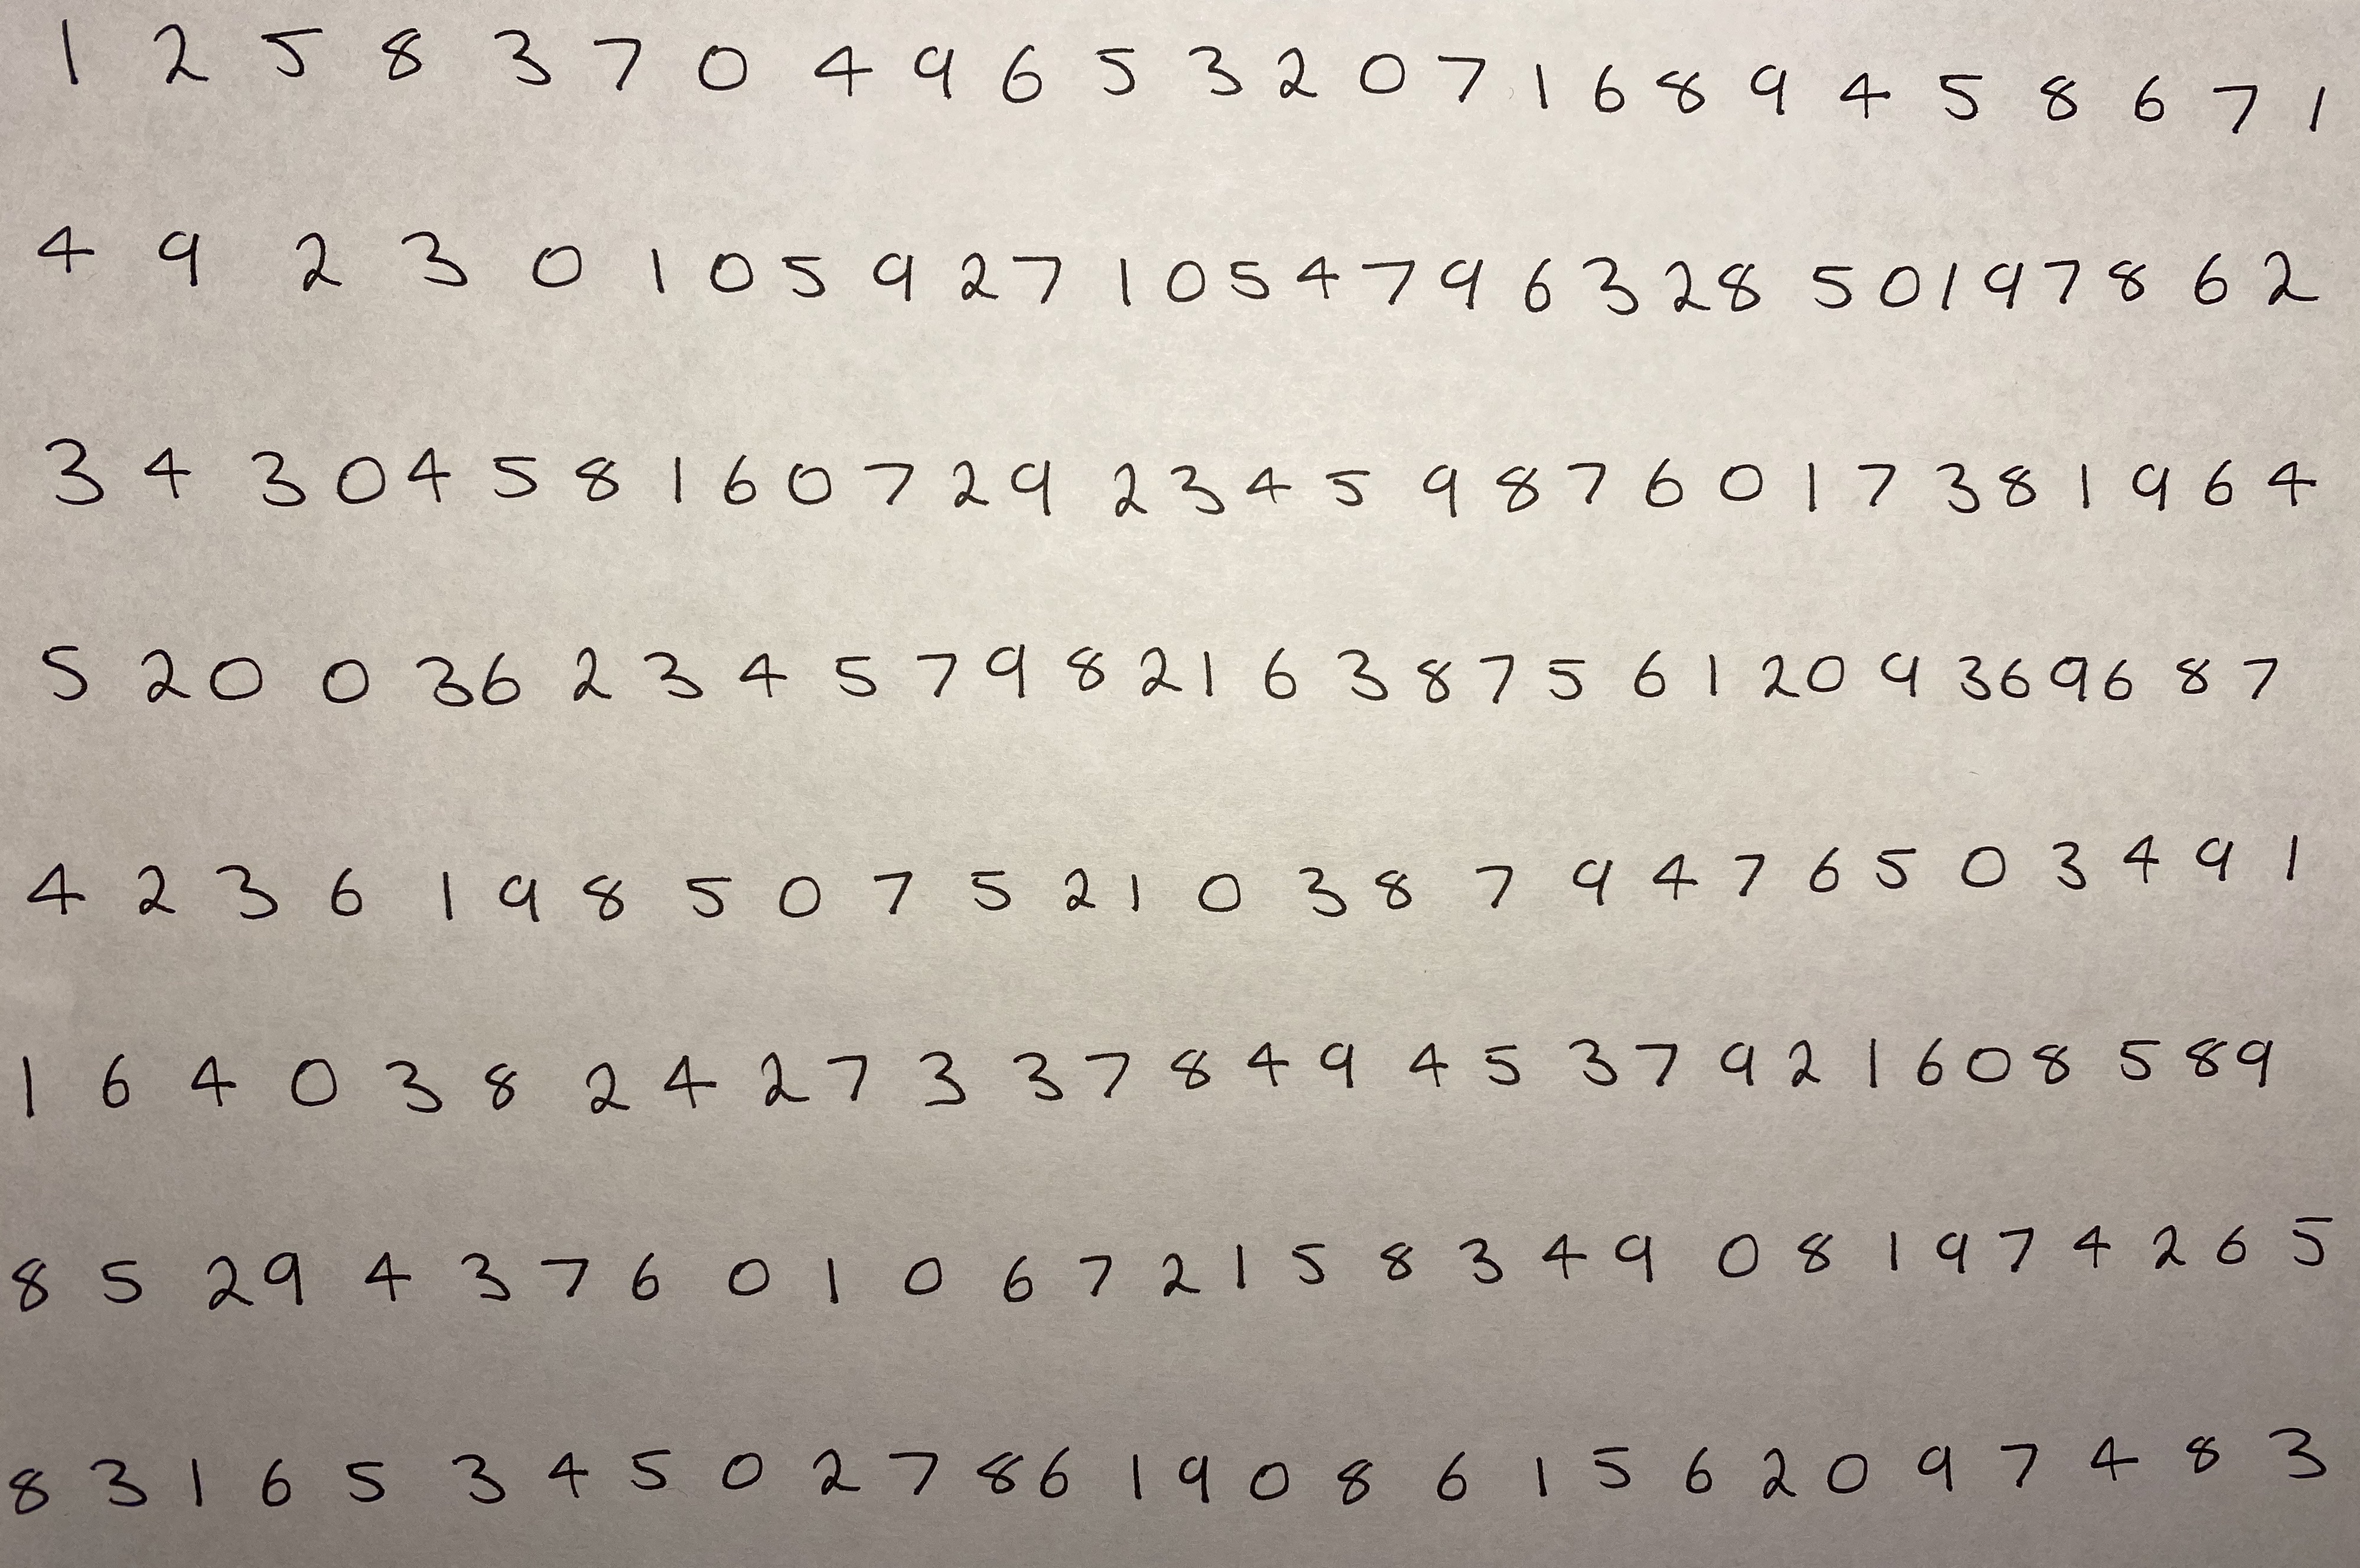 1 2 5 8 3 7 0 4 9 6 5 3 2 0 7 1 6 8 9 4 5 8 6 7 1
4 9 2 3 0 1 0 5 9 2 7 1 0 5 4 7 9 6 3 2 8 5 0 1 9 7 8 6 2
3 4 3 0 4 5 8 1 6 0 7 2 9 2 3 4 5 9 8 7 6 0 1 7 3 8 1 9 6 4
5 2 0 0 3 6 2 3 4 5 7 9 8 2 1 6 3 8 7 5 6 1 2 0 9 3 6 9 6 8 7
4 2 3 6 1 9 8 5 0 7 5 2 1 0 3 8 7 9 4 7 6 5 0 3 4 9 1
1 6 4 0 3 8 2 4 2 7 3 3 7 8 4 9 4 5 3 7 9 2 1 6 0 8 5 8 9
8 5 2 9 4 3 7 6 0 1 0 6 7 2 1 5 8 3 4 9 0 8 1 9 7 4 2 6 5
8 3 1 6 5 3 4 5 0 2 7 8 6 1 9 0 8 6 1 5 6 2 0 9 7 4 8 3